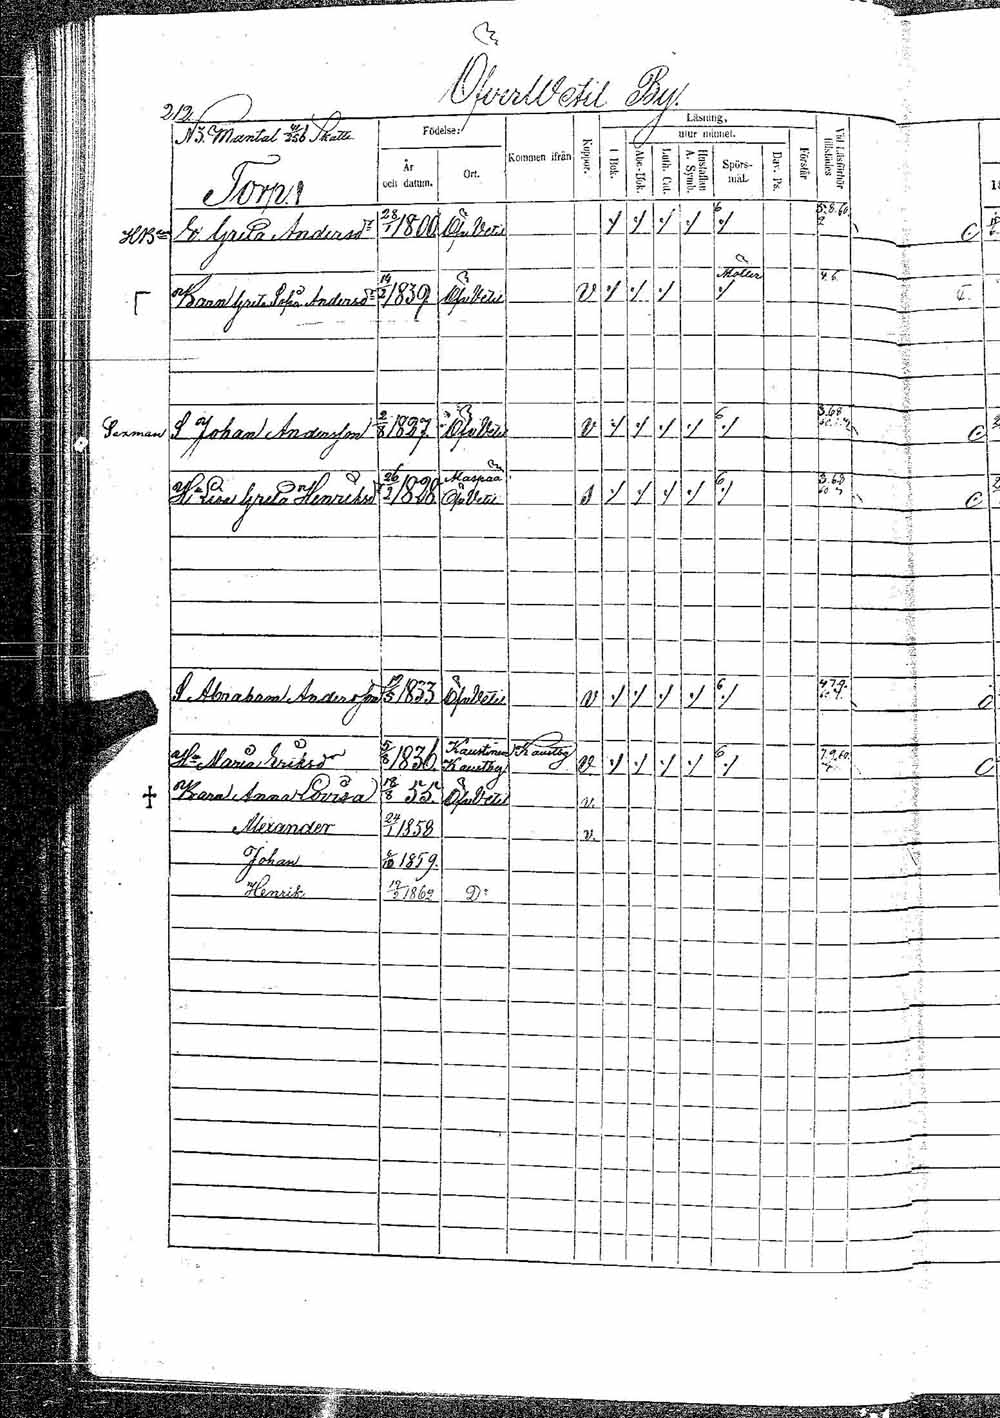 ÖfverWetil By.
212
N3. Mantal Skatte
Torp.
Födelse:
År och datum.
Ort.
Kommen ifrån
Koppor.
Läsning,
utur minnet.
i Bok.
Abc-Bok.
Luth. Cat.
Hustaflan A. Symb.
Spörs-mål.
Dav. Ps.
Förstår
Vid Läsförhör tillstädes
Greta Andersd 28/1 1800 ÖfvWetil
Barn Greta Sofia Andersd 14/2 1839 ÖfvWetil V Möller
Sexman S Johan Andersson 2/8 1827. ÖfvWetil V 6
Hu Lisa Greta Henriksd 26/2 1828 Maspaa ÖfvWetil S 6
S Abraham Andersson 1833 ÖfvWetil V 6
Hu Maria Eriksd 5/8 1836 Kaustinen Kaustby Kaustby V. 6
† Barn Anna Lovisa 18/8 55. ÖfvWetil v.
Alexander 24/1 1858 v.
Johan 1859.
Henrik 1862 D:o